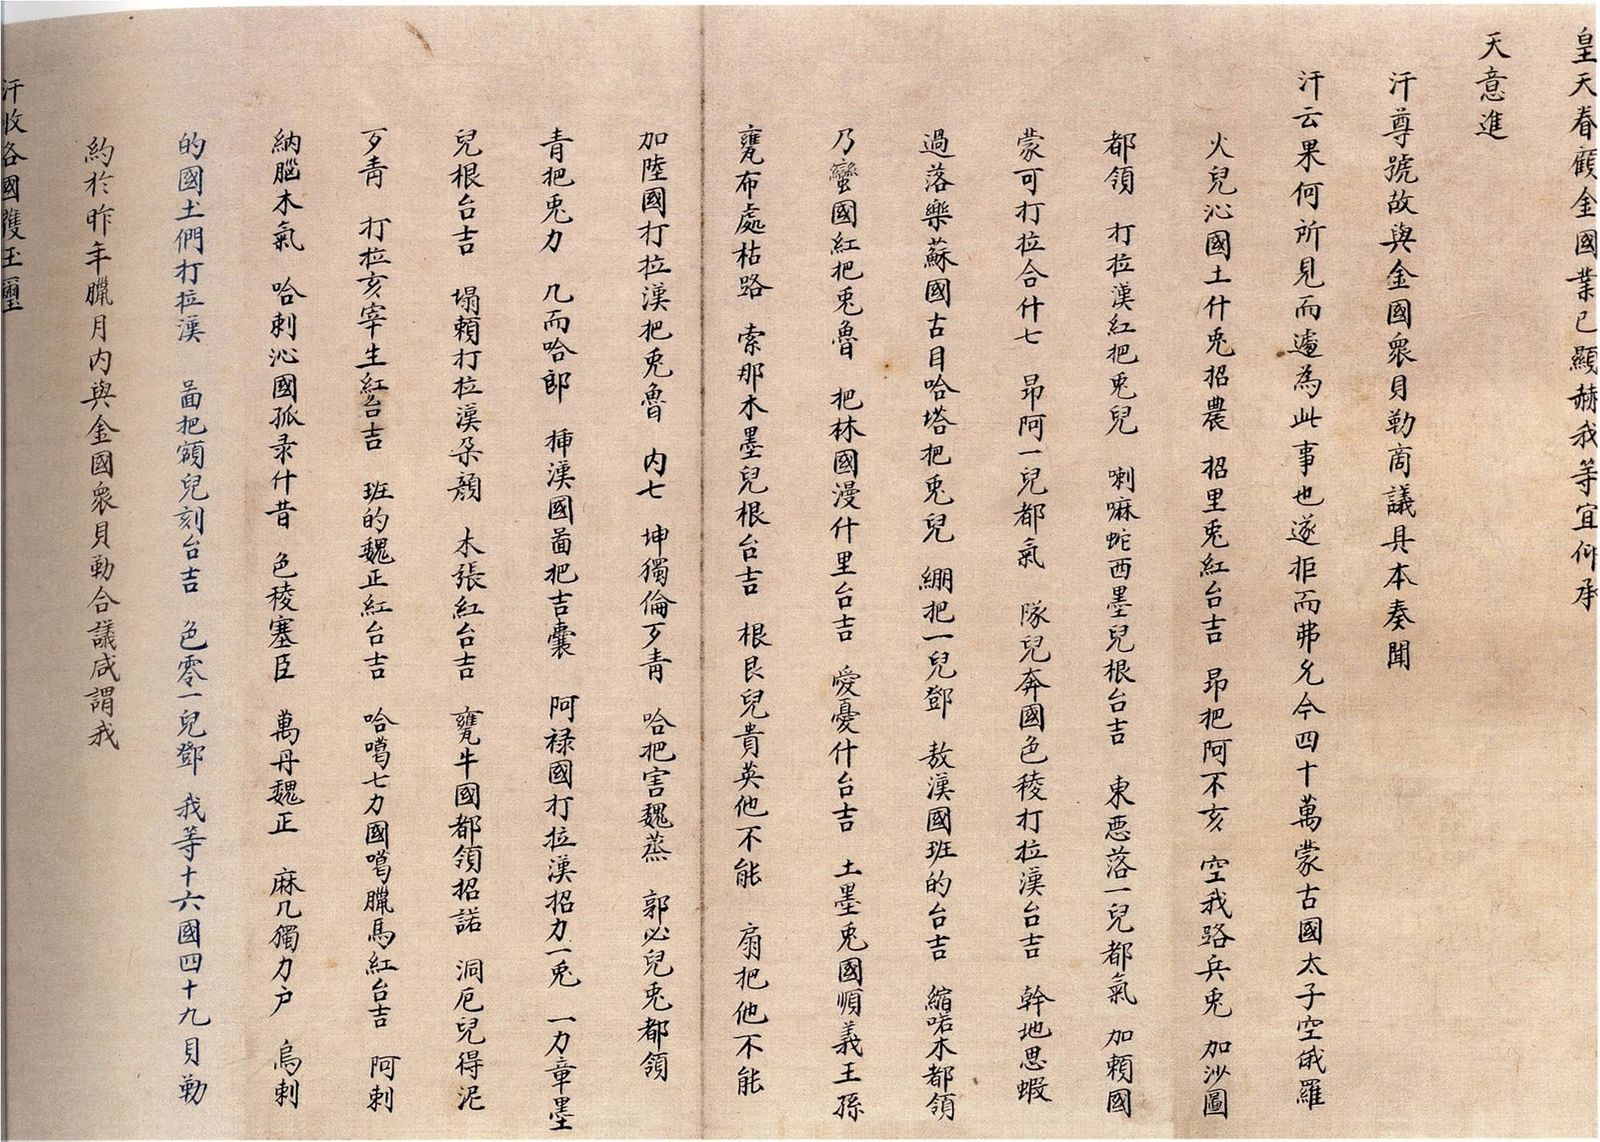 汗收各國獲玉璽
約於昨年臘月內與金國衆貝勒合議咸謂我
的國土們打拉漢 啚把額兒刻台吉 色零一兒鄧 我等十六國四十九貝勒
納腦木氣 哈剌沁國孤录什昔 色稜塞臣 萬丹魏正 麻几獨力户 烏剌
歹青 打拉亥宰生紅台吉 班的魏正紅台吉 哈噶七力國噶臘馬紅台吉 阿剌
兒根台吉 塌賴打拉漢朶顏 木張紅台吉 甕牛國都領招諾 洞厄兒得泥
青把兎力 几而哈郎 揷漢國啚把吉囊 阿禄國打拉漢招力一兎 一力章墨
加陸國打拉漢把兎魯 内七 坤獨倫歹青 哈把害魏蒸 郭必兒兎都領
甕布處枯路 索那木墨兒根台吉 根艮兒貴英他不能 扇把他不能
乃蠻國紅把兎魯 把林國漫什里台吉 愛憂什台吉 土墨兎國順義王孫
過落樂蘇國古目哈塔把兎兒 綳把一兒鄧 敖漢國班的台吉 縮喏木都領
蒙可打拉合什七 昂阿一兒都氣 隊兒奔國色稜打拉漢台吉 幹地思蝦
都領 打拉漢紅把兎兒 喇嘛蛇西墨兒根台吉 東悪落一兒都氣 加頼國
火兒沁國土什兎招農 招里兎紅台吉 昂把阿不亥 空我路兵兎 加沙圖
汗云果何所見而遽為此事也遂拒而弗允今四十萬蒙古國太子空俄羅
汗尊號故與金國衆貝勒商議具本奏聞
天意進
皇天眷顧金國業已顯赫我等宜仰承